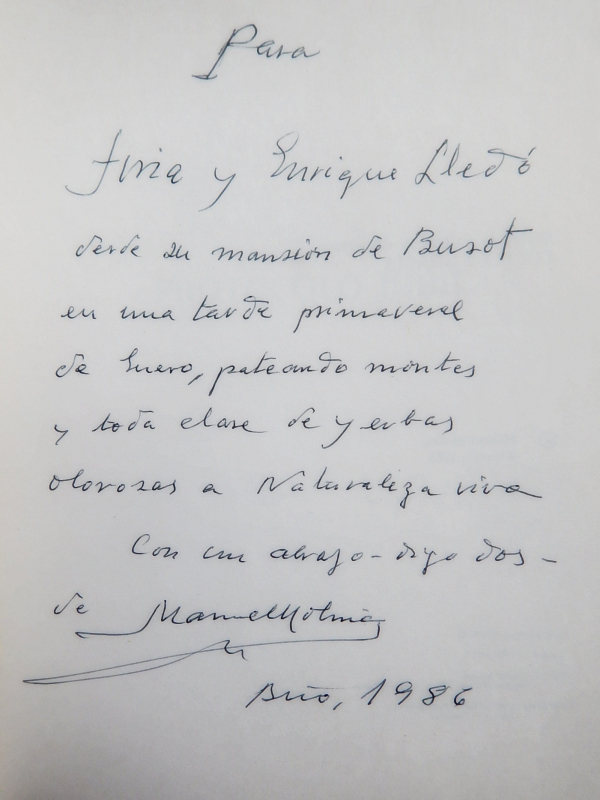 Para
y Enrique Lledó
desde su mansión de Busot
en una tarde primaveral
de Enero, pateando montes
y toda clase de yerbas
olorosas a Naturaleza viva
Con un abrazo - digo dos -
de Manuel Molina
1986